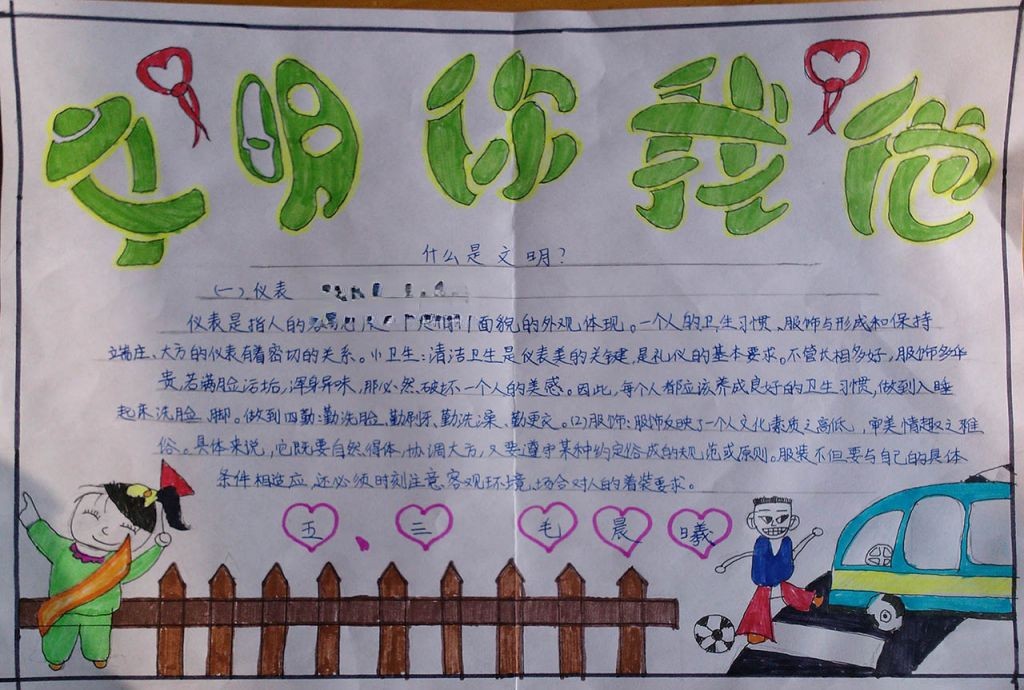 文明你我他
什么是文明?
(一)仪表
仪表是指人的 面貌的外观体现。一个人的卫生习惯、服饰与形成和保持
端庄、大方的仪表有着密切的关系。(1)卫生:清洁卫生是仪表美的关键,是礼仪的基本要求。不管长相多好,服饰多华
贵,若满脸污垢,浑身异味,那必然破坏一个人的美感。因此,每个人都应该养成良好的卫生习惯,做到入睡
起床洗脸、脚。做到四勤:勤洗脸、勤刷牙、勤洗澡、勤更衣。(2)服饰:服饰反映了一个人文化素质之高低,审美情趣之雅
俗。具体来说,它既要自然得体,协调大方,又要遵守某种约定俗成的规范或原则。服装不但要与自己的具体
条件相适应,还必须时刻注意客观环境、场合对人的着装要求。
五、三 毛晨曦